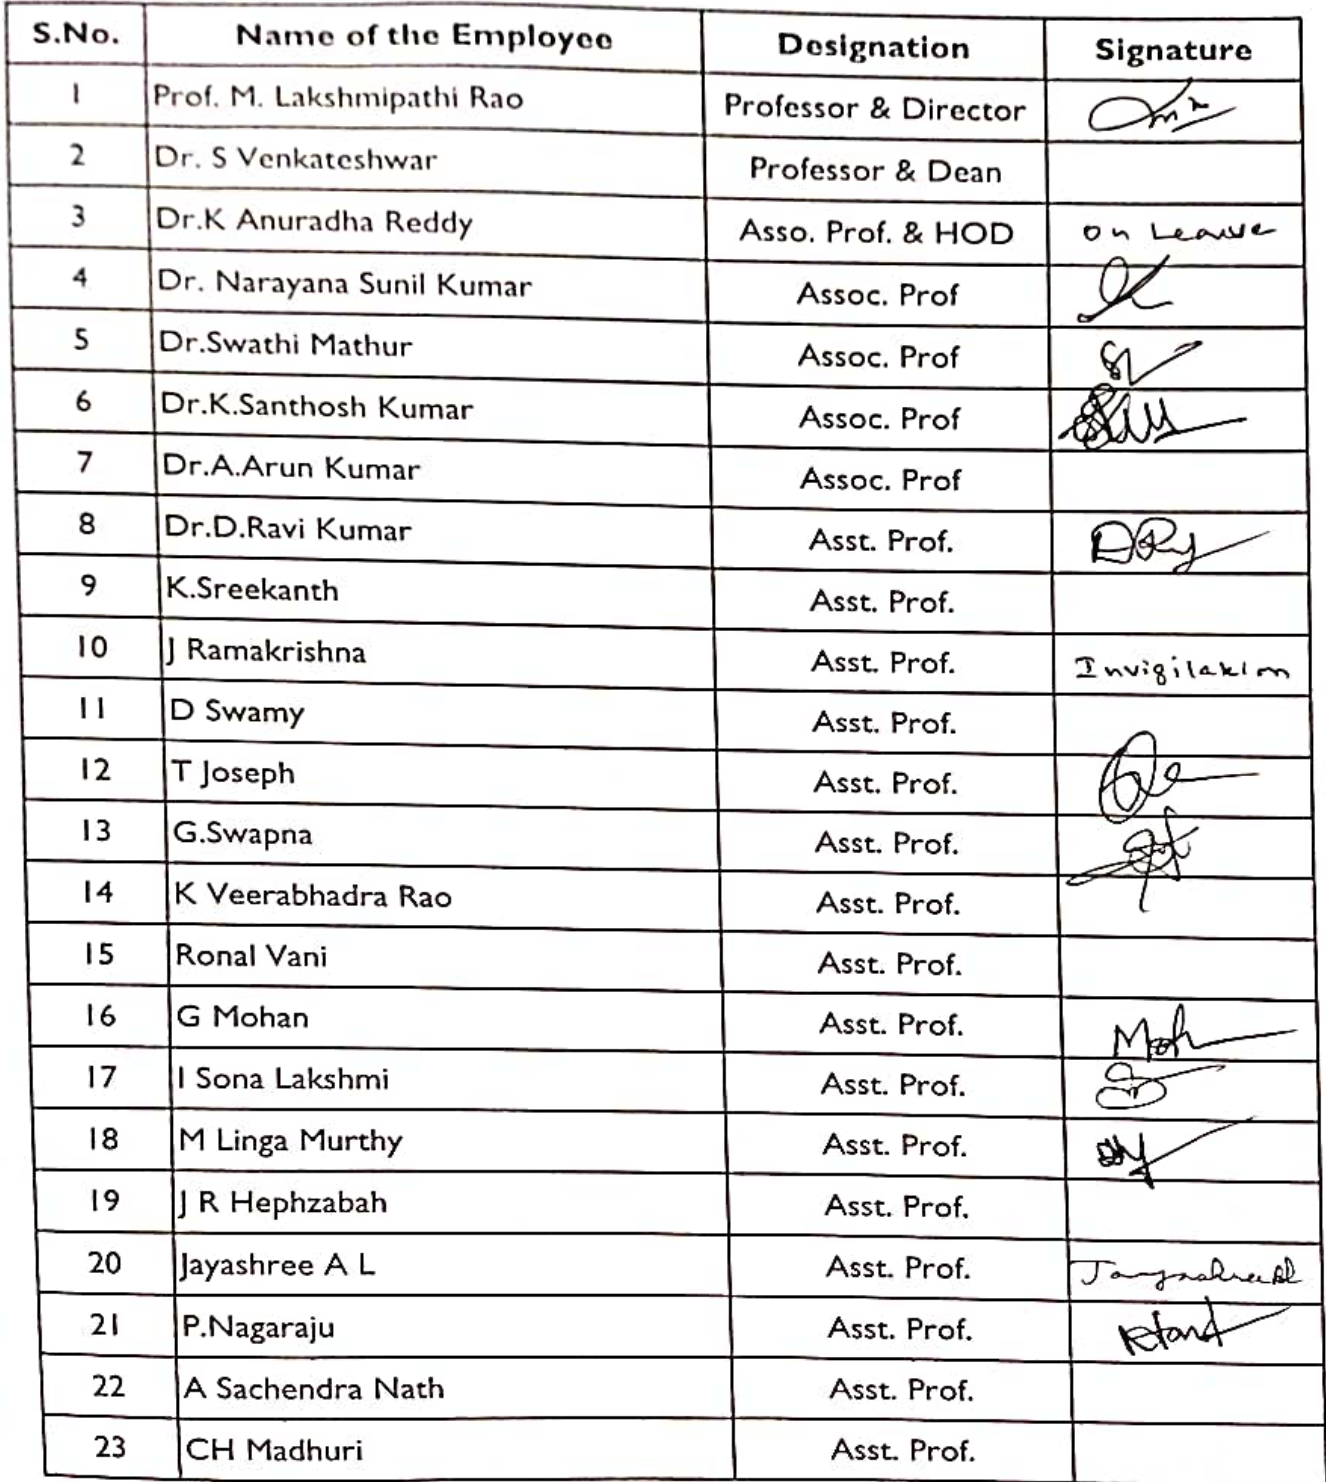 S.No. Name of the Employee Designation Signature
1 Prof. M. Lakshmipathi Rao Professor & Director
2 Dr. S Venkateshwar Professor & Dean
3 Dr.K Anuradha Reddy Asso. Prof. & HOD on Leave
4 Dr. Narayana Sunil Kumar Assoc. Prof
5 Dr.Swathi Mathur Assoc. Prof
6 Dr.K.Santhosh Kumar Assoc. Prof
7 Dr.A.Arun Kumar Assoc. Prof
8 Dr.D.Ravi Kumar Asst. Prof.
9 K.Sreekanth Asst. Prof.
10 J Ramakrishna Asst. Prof. Invigilation
11 D Swamy Asst. Prof.
12 T Joseph Asst. Prof.
13 G.Swapna Asst. Prof.
14 K Veerabhadra Rao Asst. Prof.
15 Ronal Vani Asst. Prof.
16 G Mohan Asst. Prof. Moh
17 I Sona Lakshmi Asst. Prof.
18 M Linga Murthy Asst. Prof.
19 J R Hephzabah Asst. Prof.
20 Jayashree A L Asst. Prof.
21 P.Nagaraju Asst. Prof.
22 A Sachendra Nath Asst. Prof.
23 CH Madhuri Asst. Prof.